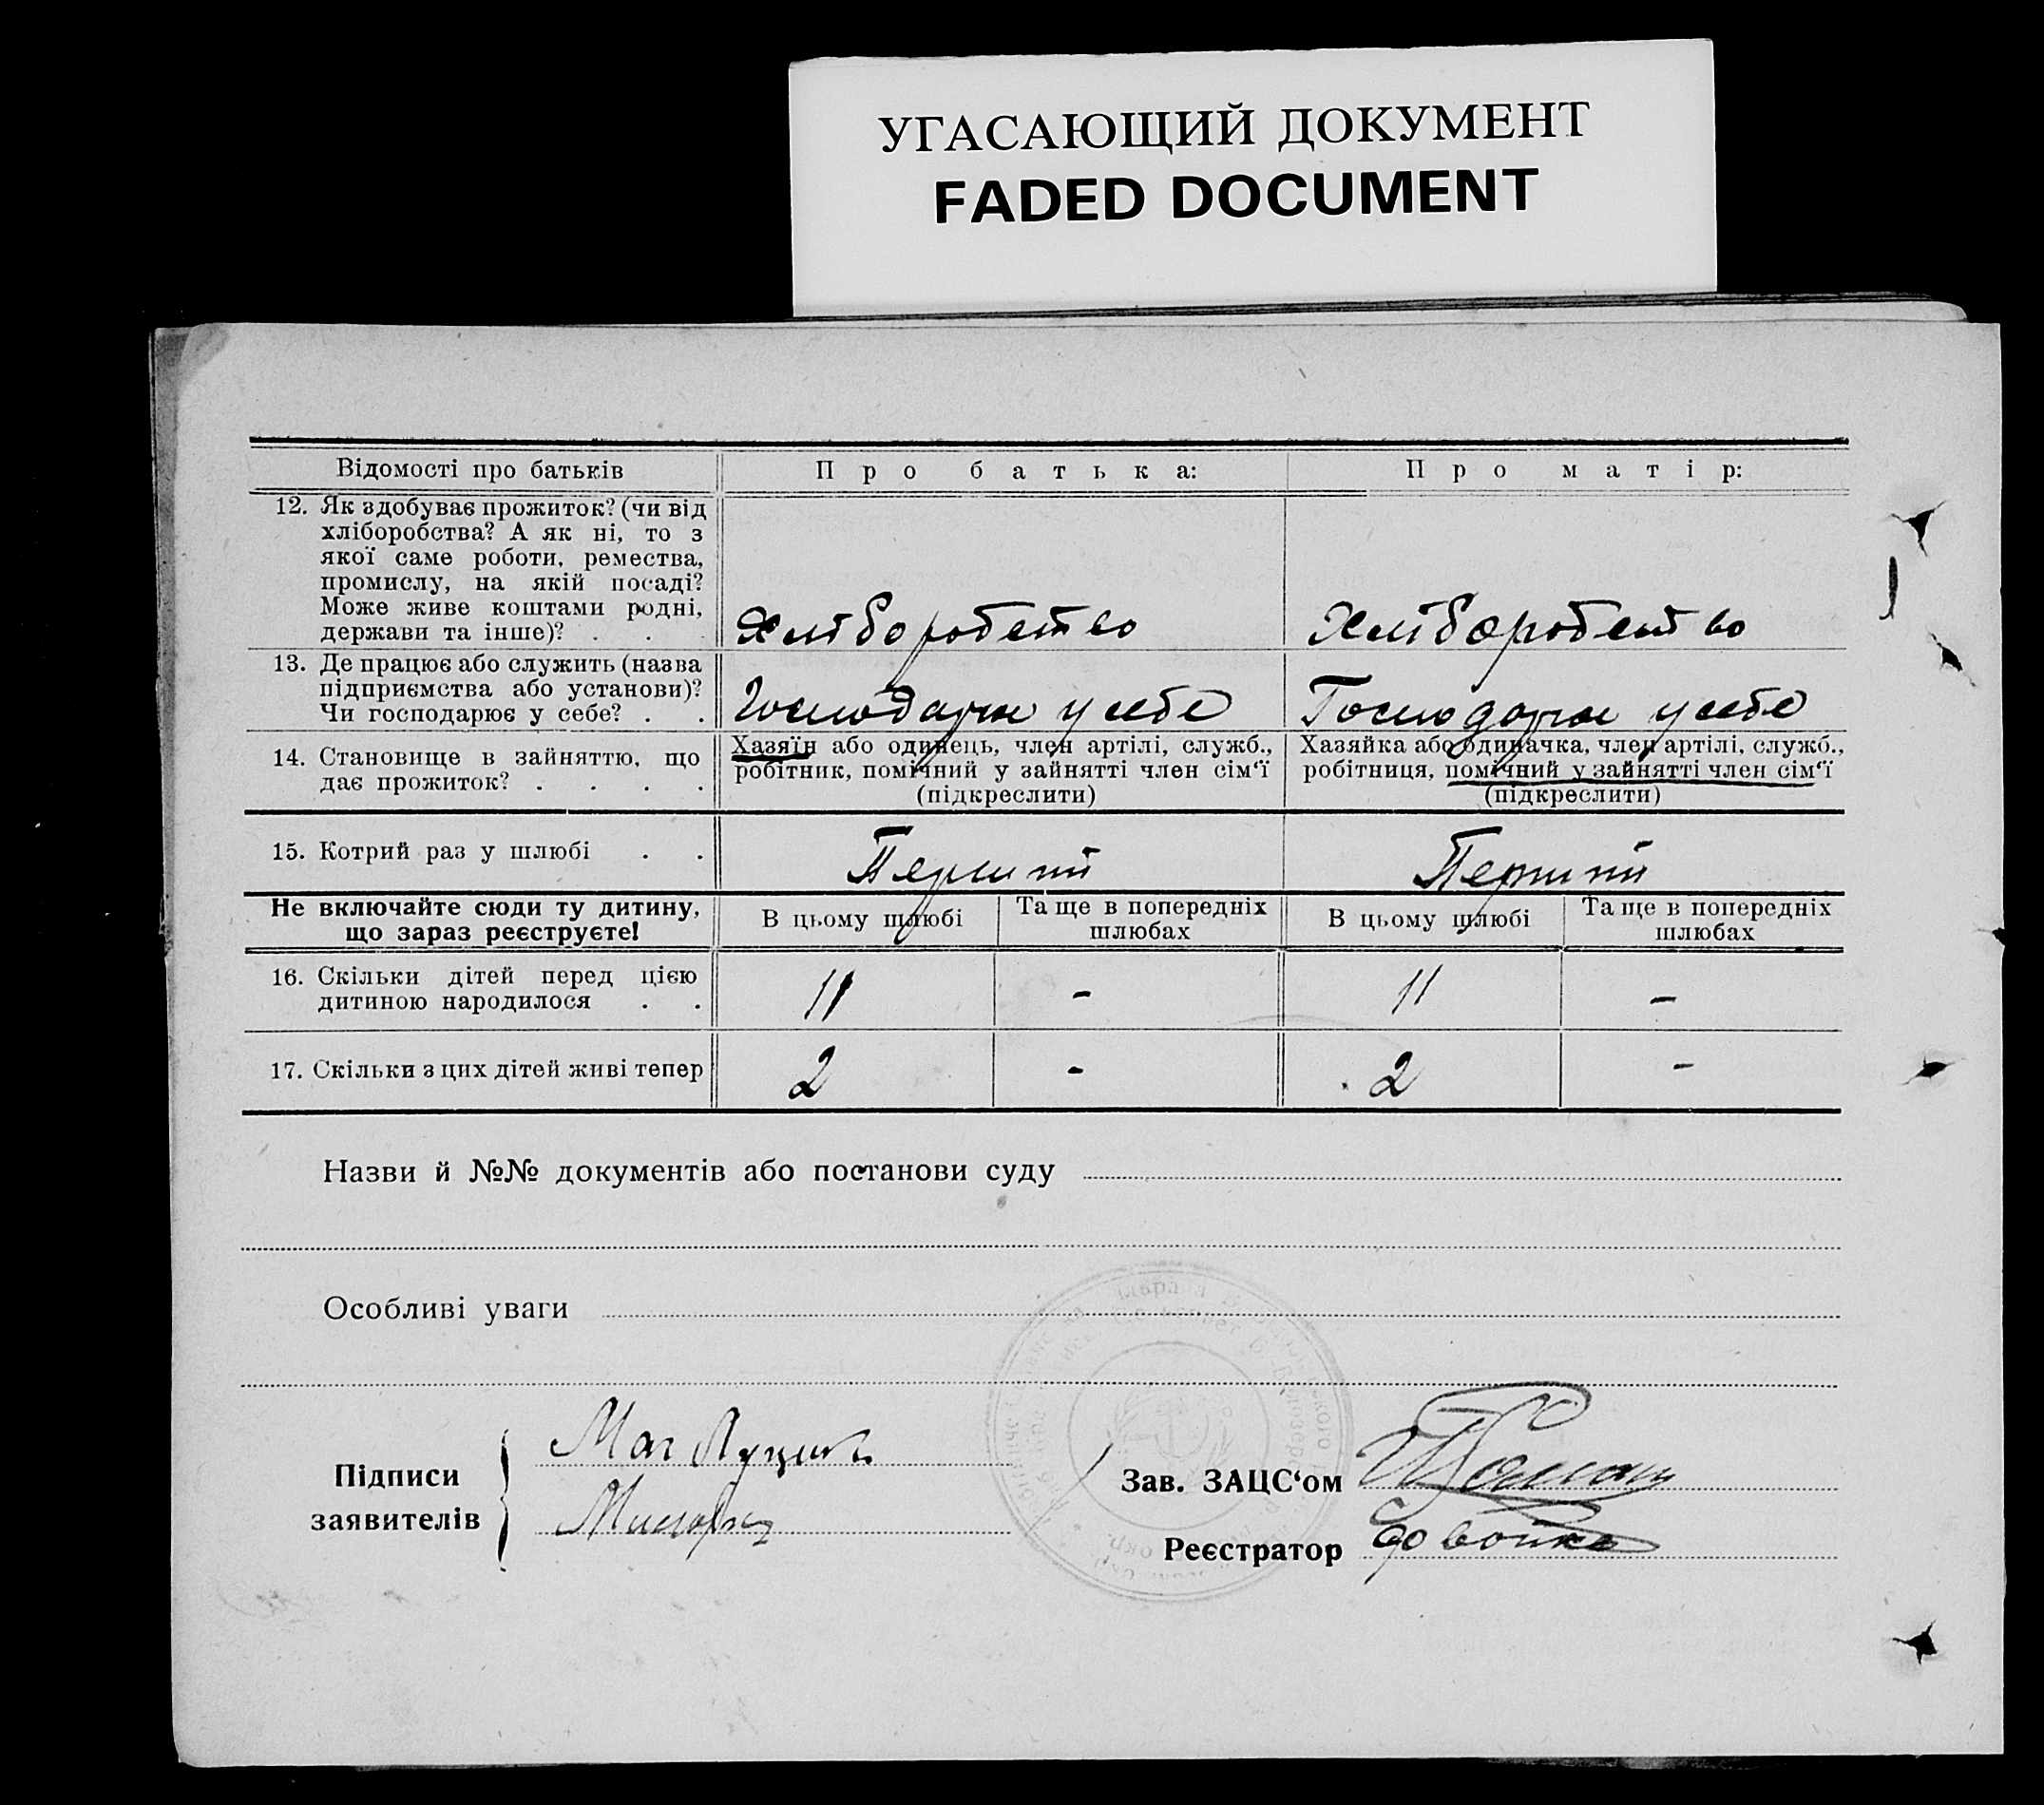 УГАСАЮЩИЙ ДОКУМЕНТ
FADED DOCUMENT
Відомості про батьків
Про батька:
Про матір:
12. Як здобуває прожиток? (чи від
хліборобства? А як ні, то з
якої саме роботи, ремества,
промислу, на якій посаді?
Може живе коштами родні,
держави та інше)? . . .
Хліборобство
Хліборобство
13. Де працює або служить (назва
підприємства або установи)?
Чи господарює у себе? . .
Господарює у себе
Господарює у себе
14. Становище в зайняттю, що
дає прожиток? . . . .
Хазяїн або одинець, член артілі, служб.,
робітник, помічний у зайнятті член сім‘ї
(підкреслити)
Хазяйка або одиначка, член артілі, служб.,
робітниця, помічний у зайнятті член сім‘ї
(підкреслити)
15. Котрий раз у шлюбі . .
Перший
Перший
Не включайте сюди ту дитину,
що зараз реєструєте!
В цьому шлюбі
Та ще в попередніх
шлюбах
В цьому шлюбі
Та ще в попередніх
шлюбах
16. Скільки дітей перед цією
дитиною народилося . .
11
-
11
-
17. Скільки з цих дітей живі тепер
2
-
2
-
Назви й №№ документів або постанови суду
Особливі уваги
Підписи
заявителів
Зав. ЗАЦС‘ом
Реєстратор